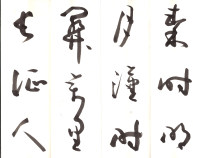 秦时明
月漢时
關万里
长征人